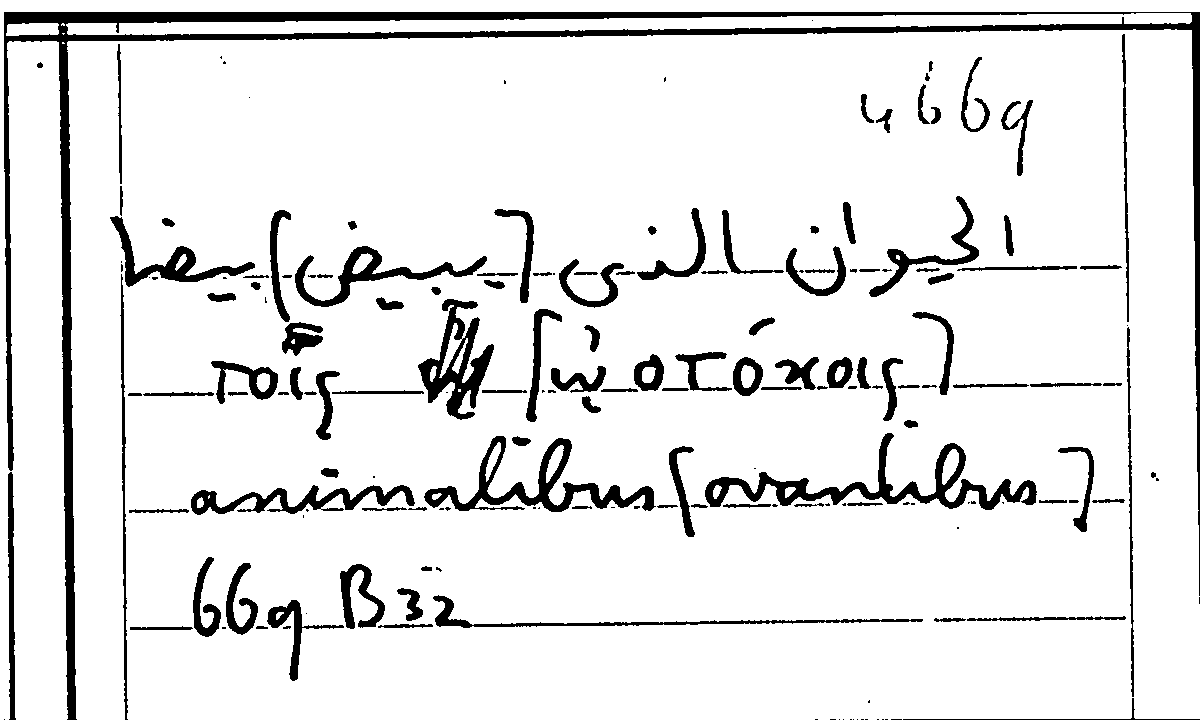 4669
الحيوان الذى [يبيض] بيضا
τοῖς [ᾠοτόκοις]
animalibus [ovantibus]
669 B32